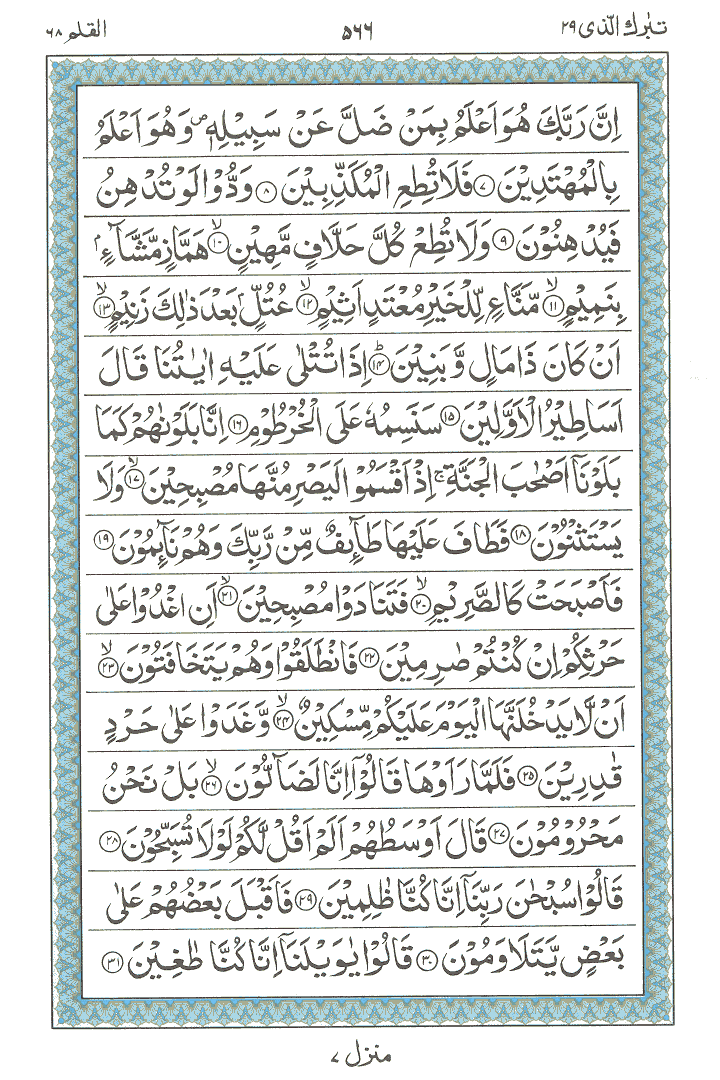 تبٰرك الّذى ٢٩
٥٦٦
القلم ٦٨
اِنَّ رَبَّكَ هُوَ اَعْلَمُ بِمَنْ ضَلَّ عَنْ سَبِيْلِهٖ ۪ وَهُوَ اَعْلَمُ
بِالْمُهْتَدِيْنَ ۝٧ فَلَا تُطِعِ الْمُكَذِّبِيْنَ ۝٨ وَدُّوْا لَوْ تُدْهِنُ
فَيُدْهِنُوْنَ ۝٩ وَلَا تُطِعْ كُلَّ حَلَّافٍ مَّهِيْنٍ ۙ۝١٠ هَمَّازٍ مَّشَّآءٍۭ
بِنَمِيْمٍ ۙ۝١١ مَّنَّاعٍ لِّلْخَيْرِ مُعْتَدٍ اَثِيْمٍ ۙ۝١٢ عُتُلٍّۭ بَعْدَ ذٰلِكَ زَنِيْمٍ ۙ۝١٣
اَنْ كَانَ ذَا مَالٍ وَّبَنِيْنَ ؕ۝١٤ اِذَا تُتْلٰى عَلَيْهِ اٰيٰتُنَا قَالَ
اَسَاطِيْرُ الْاَوَّلِيْنَ ۝١٥ سَنَسِمُهٗ عَلَى الْخُرْطُوْمِ ۝١٦ اِنَّا بَلَوْنٰهُمْ كَمَا
بَلَوْنَآ اَصْحٰبَ الْجَنَّةِ ۚ اِذْ اَقْسَمُوْا لَيَصْرِمُنَّهَا مُصْبِحِيْنَ ۙ۝١٧ وَلَا
يَسْتَثْنُوْنَ ۝١٨ فَطَافَ عَلَيْهَا طَآىِٕفٌ مِّنْ رَّبِّكَ وَهُمْ نَآىِٕمُوْنَ ۝١٩
فَاَصْبَحَتْ كَالصَّرِيْمِ ۙ۝٢٠ فَتَنَادَوْا مُصْبِحِيْنَ ۙ۝٢١ اَنِ اغْدُوْا عَلٰى
حَرْثِكُمْ اِنْ كُنْتُمْ صٰرِمِيْنَ ۝٢٢ فَانْطَلَقُوْا وَهُمْ يَتَخَافَتُوْنَ ۙ۝٢٣
اَنْ لَّا يَدْخُلَنَّهَا الْيَوْمَ عَلَيْكُمْ مِّسْكِيْنٌ ۙ۝٢٤ وَّغَدَوْا عَلٰى حَرْدٍ
قٰدِرِيْنَ ۝٢٥ فَلَمَّا رَاَوْهَا قَالُوْٓا اِنَّا لَضَآلُّوْنَ ۙ۝٢٦ بَلْ نَحْنُ
مَحْرُوْمُوْنَ ۝٢٧ قَالَ اَوْسَطُهُمْ اَلَمْ اَقُلْ لَّكُمْ لَوْلَا تُسَبِّحُوْنَ ۝٢٨
قَالُوْا سُبْحٰنَ رَبِّنَآ اِنَّا كُنَّا ظٰلِمِيْنَ ۝٢٩ فَاَقْبَلَ بَعْضُهُمْ عَلٰى
بَعْضٍ يَّتَلَاوَمُوْنَ ۝٣٠ قَالُوْا يٰوَيْلَنَآ اِنَّا كُنَّا طٰغِيْنَ ۝٣١
منزل ٧